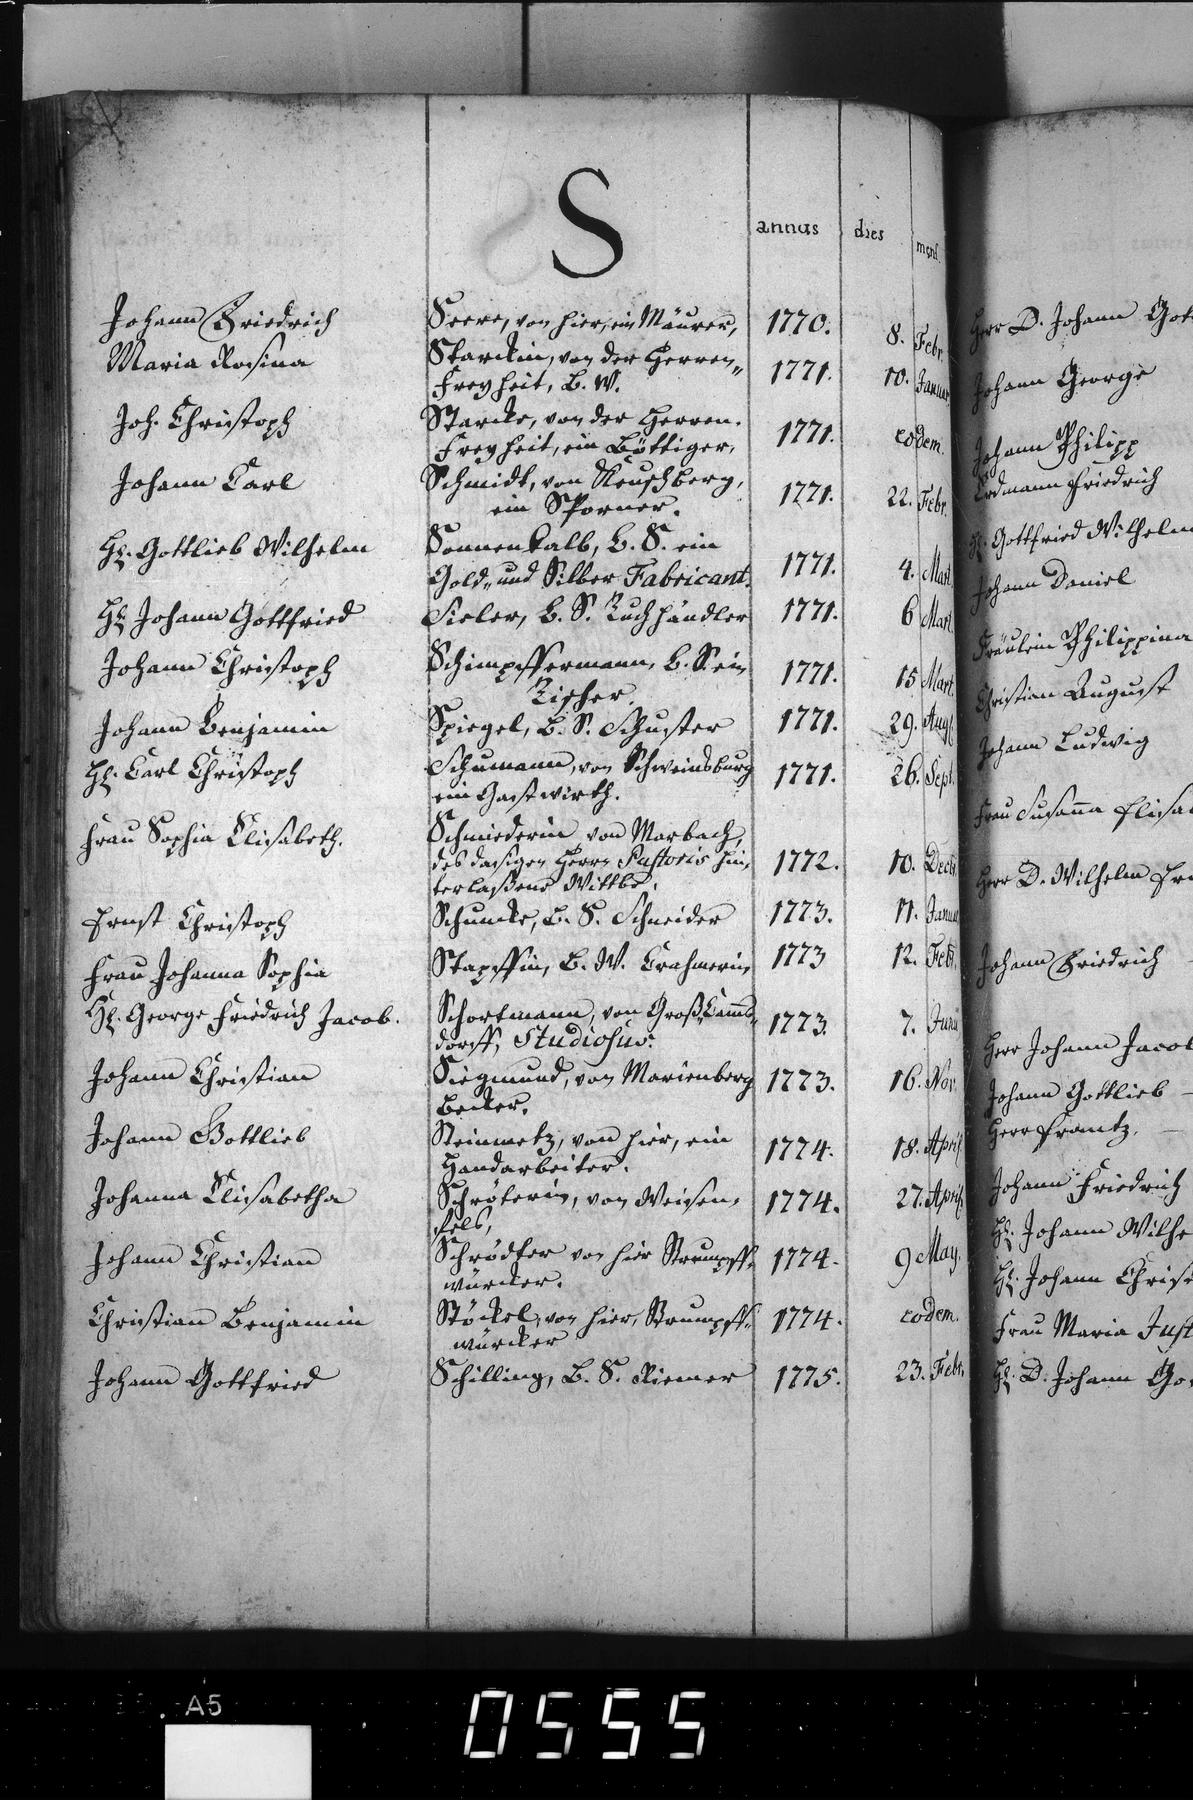 S
annus dies mens.
Johann Friedrich Seere, von hier, ein Mäurer, 1770. 8. Febr.
Maria Rosina Starckin, von der Herren„ 1771. 10. Januar.
Freyheit, B. W.
Joh. Christoph Starcke, von der Herren. 1771. eodem.
Freyheit, ein Böttiger,
Johann Carl Schmidt, von Neuschberg, 1771. 22. Febr.
ein Sporner.
H. Gottlieb Wilhelm Sonnenkalb, B. S. ein 1771. 4. Mart.
Gold„ und Silber Fabricant.
H. Johann Gottfried Sieler, B. S. Tuchhändler 1771. 6 Mart.
Johann Christoph Schimpffermann, B. S. ein 1771. 15 Mart.
Tischer.
Johann Benjamin Spiegel, B. S. Schuster 1771. 29. Aug.
H. Carl Christoph Schumann, von Schweinsburg 1771. 26. Sept.
ein Gastwirth.
Frau Sophia Elisabeth. Schmiederin von Marbach,
des dasigen Herrn Pastoris hin, 1772. 10. Decb.
terlaßene Wittbe.
Ernst Christoph Schuncke, B. S. Schneider 1773. 11. Januar
Frau Johanna Sophia Stapffin, B. W. Crahmerin 1773 12. Feb.
H. George Friedrich Jacob. Schortmann, von Groß„Camms„ 1773. 7. Junii
dorff, Studiosus.
Johann Christian Siegmund, von Marienberg 1773. 16. Nov.
Becker.
Johann Gottlieb Steinmetz, von hier, ein 1774. 18. April.
Handarbeiter.
Johanna Elisabetha Schröterin, von Weisen, 1774. 27. April.
fels,
Johann Christian Schrödter von hier Strumpff„ 1774. 9 May.
würcker.
Christian Benjamin Stöckel, von hier, Strumpff„ 1774. eodem.
würcker
Johann Gottfried Schilling, B. S. Riemer 1775. 23. Febr.
Herr D. Johann Got
Johann George
Johann Philipp
Erdmann Friedrich
H. Gottfried Wilhelm
Johann Daniel
Fräulein Philippina
Christian August
Johann Ludwig
Frau Susanna Elisa
Herr D. Wilhelm Er
Johann Friedrich
Herr Johann Jacob
Johann Gottlieb
Herr Frantz.
Johann Friedrich
H. Johann Wilhe
H. Johann Christ
Frau Maria Just
H. D. Johann Go
A5
0555